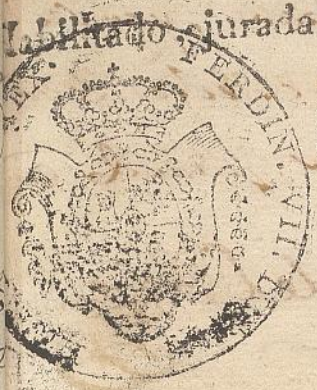 Habilitado, jurada
FERDIN. VII. D.
EX.